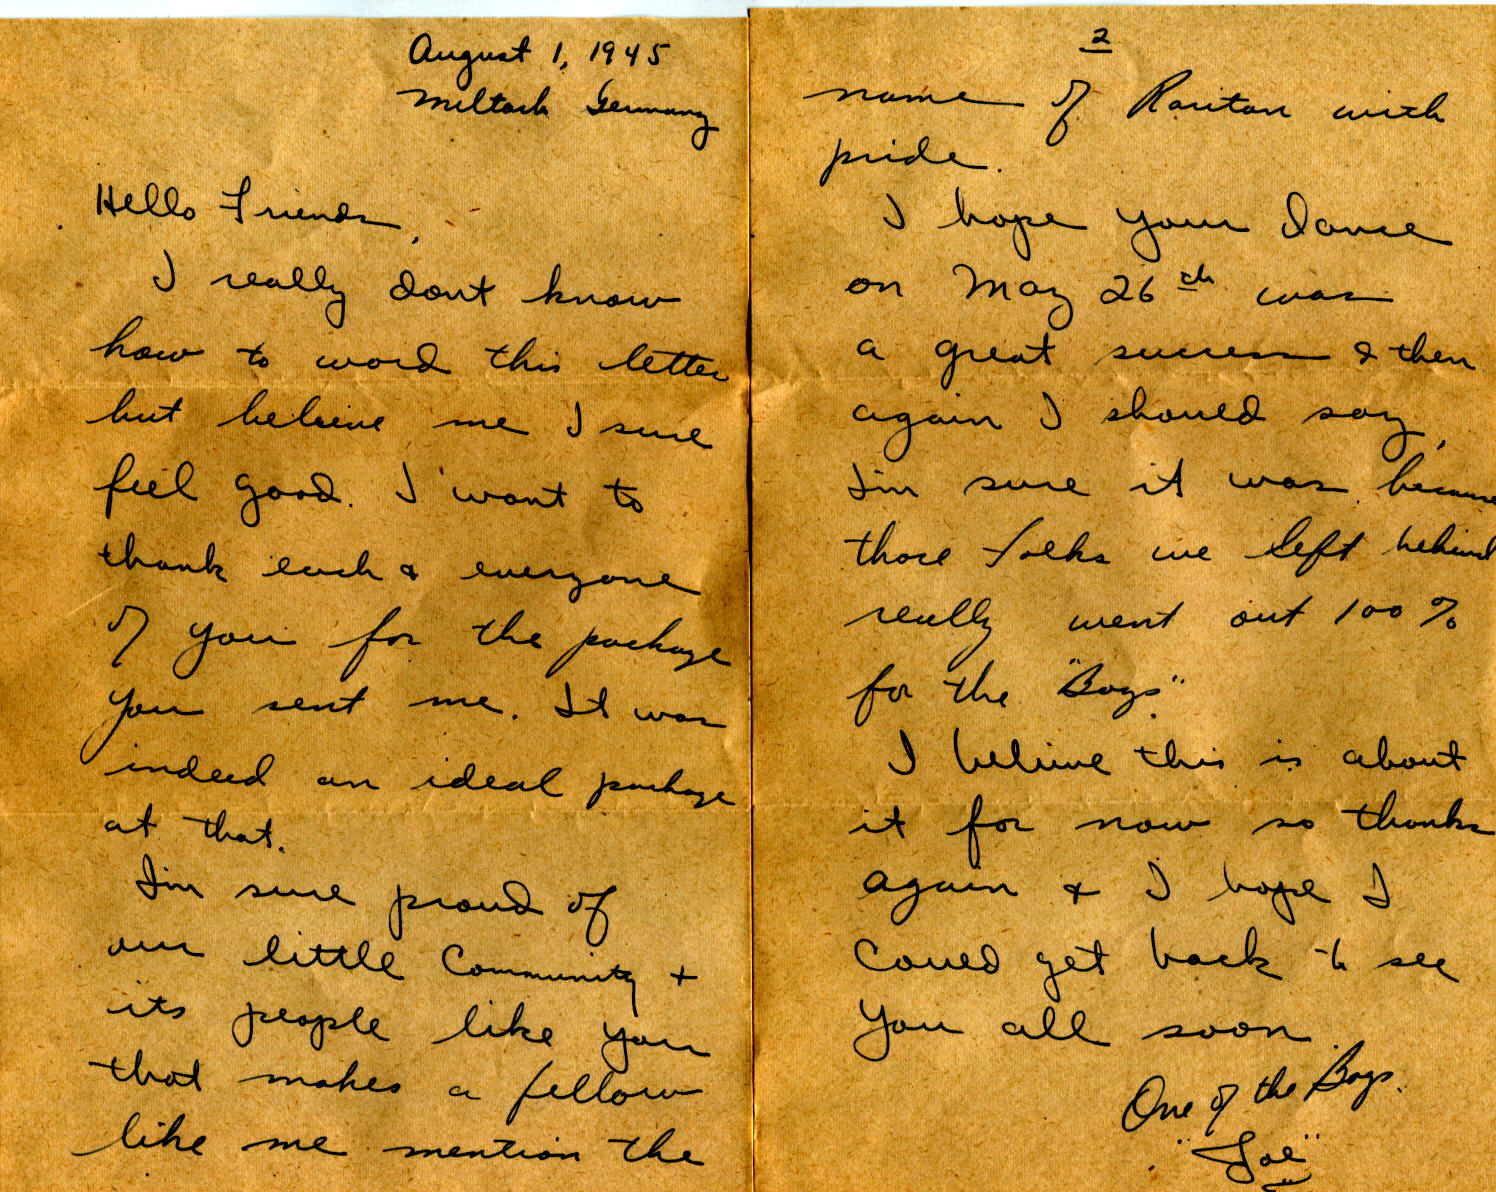 August 1, 1945
Miltach Germany
Hello Friends,
I really dont know
how to word this letter
but believe me I sure
feel good. I want to
thank each & everyone
of you for the package
you sent me. It was
indeed an ideal package
at that.
I'm sure proud of
our little Community +
its people like you
that makes a fellow
like me mention the
2
name of Raritan with
pride.
I hope your dance
on May 26th was
a great success & then
again I should say,
I'm sure it was because
those folks we left behind
really went out 100%
for the "Boys".
I believe this is about
it for now so thanks
again & I hope I
could get back to see
you all soon.
One of the Boys.
"Joe"